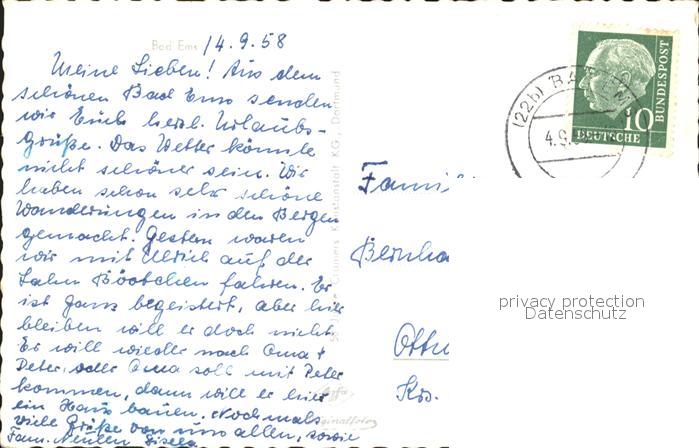 Bad Ems 14.9.58
Meine Lieben! Aus dem
schönen Bad Ems senden
wir Euch herzl. Urlaubs-
grüße. Das Wetter könnte
nicht schöner sein. Wir
haben schon sehr schöne
Wanderungen in den Bergen
gemacht. Gestern waren
wir mit Ulrich auf der
Lahn Böötchen fahren. Er
ist ganz begeistert, aber hier
bleiben will er doch nicht.
Er will wieder nach Oma +
Peter, oder Oma soll mit Peter
kommen, dann will er hier
ein Haus bauen. Nochmals
viele Grüße von uns allen, sowie
Fam. Neulen Gisela
Cramers Kunstanstalt KG, Dortmund
(22b) BAD EMS
4.9.
10
DEUTSCHE
BUNDESPOST
Famil
Bernha
Ottw
Krs.
privacy protection
Datenschutz